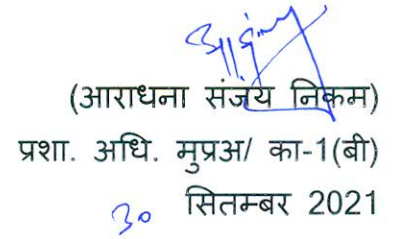 (आराधना संजय निकम)
प्रशा. अधि. मुप्रअ/ का-1(बी)
30 सितम्बर 2021